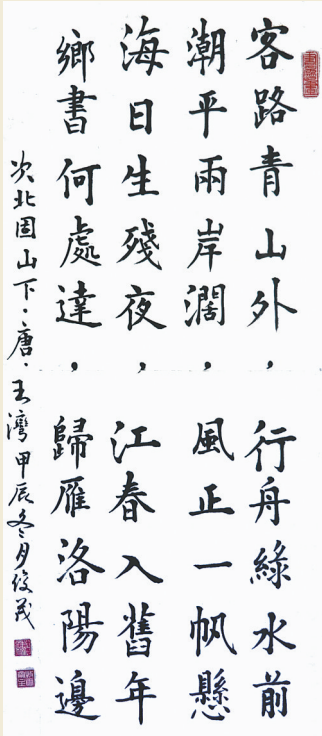 客路青山外，行舟綠水前
潮平兩岸濶，風正一帆懸
海日生殘夜，江春入舊年
鄉書何處達，歸雁洛陽邊
次北固山下·唐·王灣甲辰冬月俊茂